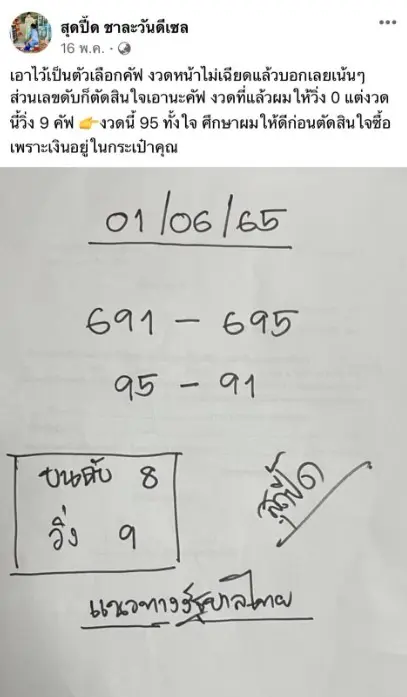 สุดปี๊ด ชาละวันดีเซล
16 พ.ค.
เอาไว้เป็นตัวเลือกคัฟ งวดหน้าไม่เฉียดแล้วบอกเลยเน้นๆ
ส่วนเลขดับก็ตัดสินใจเอานะคัฟ งวดที่แล้วผมให้วิ่ง 0 แต่งวด
นี้วิ่ง 9 คัฟ 👉งวดนี้ 95 ทั้งใจ ศึกษาผมให้ดีก่อนตัดสินใจซื้อ
เพราะเงินอยู่ในกระเป๋าคุณ
01/06/65
691 - 695
95 - 91
บนดับ 8
วิ่ง 9
สุดปี๊ด
แนวทางรัฐบาลไทย